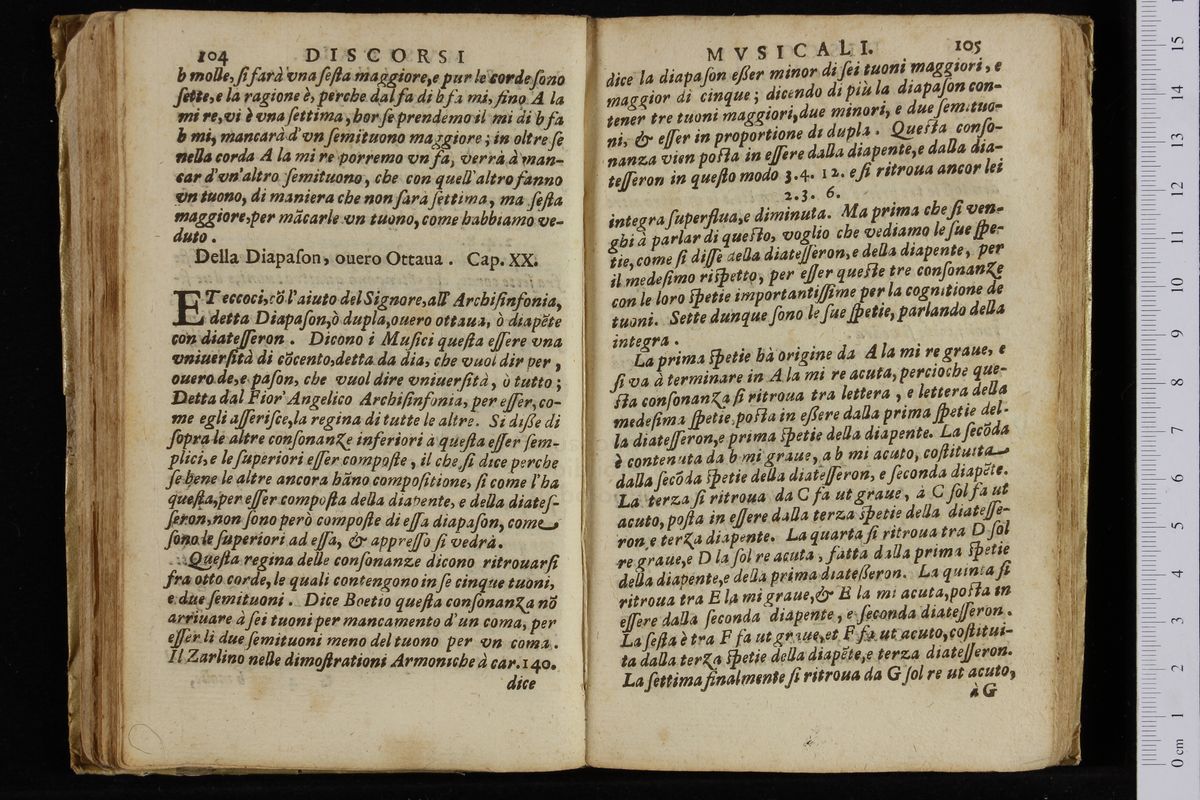 104 DISCORSI
b molle, si farà vna sesta maggiore, e pur le corde sono
sette, e la ragione è, perche dal fa di b fa mi, fino A la
mi re, vi è vna settima, hor se prendemo il mi di b fa
b mi, mancarà d'vn semituono maggiore; in oltre se
nella corda A la mi re porremo vn fa, verrà à man-
car d'vn'altro semituono, che con quell'altro fanno
vn tuono, di maniera che non sarà settima, ma sesta
maggiore, per mācarle vn tuono, come habbiamo ve-
duto.
Della Diapason, ouero Ottaua. Cap. XX.
ET eccoci, cō l'aiuto del Signore, all' Archisinfonia,
detta Diapason, ò dupla, ouero ottaua, ò diapēte
con diatesseron. Dicono i Musici questa essere vna
vniuersità di cōcento, detta da dia, che vuol dir per,
ouero de, e pason, che vuol dire vniuersità, ò tutto;
Detta dal Fior' Angelico Archisinfonia, per esser, co-
me egli asserisce, la regina di tutte le altre. Si disse di
sopra le altre consonanze inferiori à questa esser sem-
plici, e le superiori esser composte, il che si dice perche
se bene le altre ancora hāno compositione, si come l'ha
questa, per esser composta della diapente, e della diates-
seron, non sono però composte di essa diapason, come
sono le superiori ad essa, & appresso si vedrà.
Questa regina delle consonanze dicono ritrouarsi
fra otto corde, le quali contengono in se cinque tuoni,
e due semituoni. Dice Boetio questa consonanza nō
arriuare à sei tuoni per mancamento d'un coma, per
esser li due semituoni meno del tuono per vn coma.
Il Zarlino nelle dimostrationi Armoniche à car. 140.
dice
MVSICALI. 105
dice la diapason esser minor di sei tuoni maggiori, e
maggior di cinque; dicendo di più la diapason con-
tener tre tuoni maggiori, due minori, e due semituo-
ni, & esser in proportione di dupla. Questa conso-
nanza vien posta in essere dalla diapente, e dalla dia-
tesseron in questo modo 3.4. 12. e si ritroua ancor lei
2.3. 6.
integra superflua, e diminuta. Ma prima che si ven-
ghi à parlar di questo, voglio che vediamo le sue spe-
tie, come si disse della diatesseron, e della diapente, per
il medesimo rispetto, per esser queste tre consonanze
con le loro spetie importantissime per la cognitione de
tuoni. Sette dunque sono le sue spetie, parlando della
integra.
La prima spetie hà origine da A la mi re graue, e
si va à terminare in A la mi re acuta, percioche que-
sta consonanza si ritroua tra lettera, e lettera della
medesima spetie, posta in essere dalla prima spetie del-
la diatesseron, e prima spetie della diapente. La secōda
è contenuta da b mi graue, a b mi acuto, costituita
dalla secōda spetie della diatesseron, e seconda diapēte.
La terza si ritroua da C fa ut graue, à C sol fa ut
acuto, posta in essere dalla terza spetie della diatesse-
ron e terza diapente. La quarta si ritroua tra D sol
re graue, e D la sol re acuta, fatta dalla prima spetie
della diapente, e della prima diatesseron. La quinta si
ritroua tra E la mi graue, & E la mi acuta, posta in
essere dalla seconda diapente, e seconda diatesseron.
La sesta è tra F fa ut graue, et F fa ut acuto, costitui-
ta dalla terza spetie della diapēte, e terza diatesseron.
La settima finalmente si ritroua da G sol re ut acuto,
à G
0 cm 1 2 3 4 5 6 7 8 9 10 11 12 13 14 15